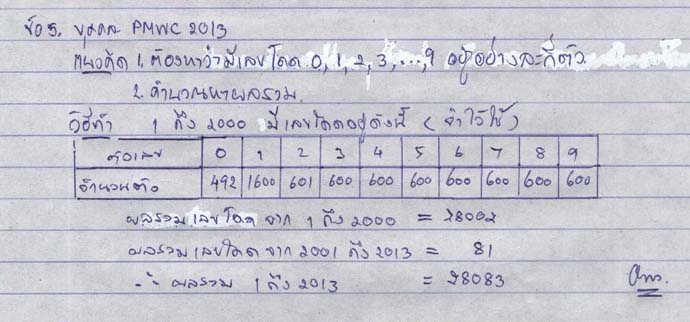 ข้อ 5. บุคคล PMWC 2013
แนวคิด 1. ต้องหาว่ามีเลขโดด 0, 1, 2, 3, ..., 9 อยู่อย่างละกี่ตัว
2. คำนวณหาผลรวม.
วิธีทำ 1 ถึง 2000 มีเลขโดดอยู่ดังนี้ (จำไว้ใช้)
ตัวเลข 0 1 2 3 4 5 6 7 8 9
จำนวนตัว 492 1600 601 600 600 600 600 600 600 600
ผลรวมเลขโดด จาก 1 ถึง 2000 = 28002
ผลรวมเลขโดด จาก 2001 ถึง 2013 = 81
∴ ผลรวม 1 ถึง 2013 = 28083 Ans.